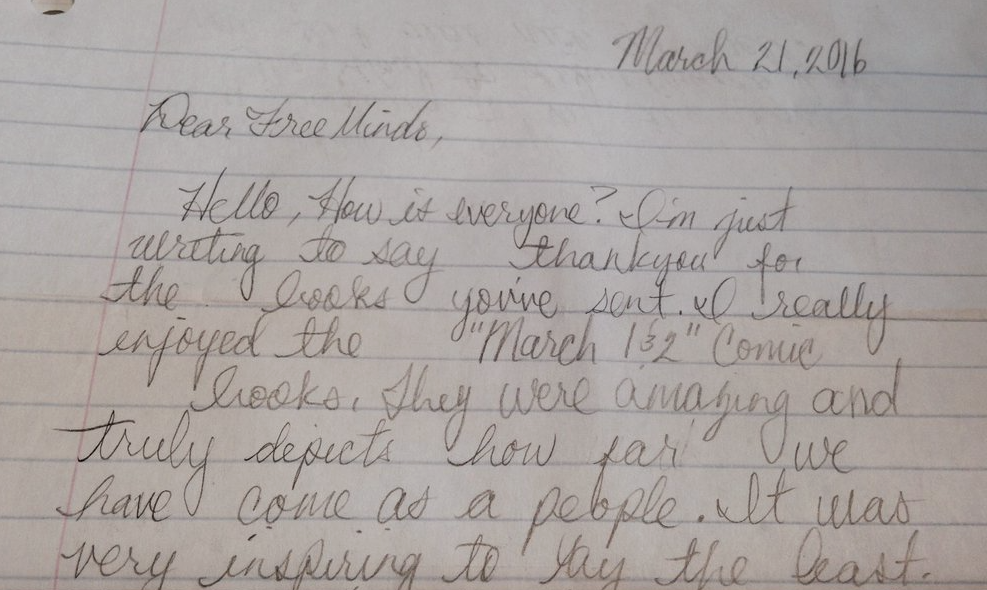 March 21, 2016
Dear Free Minds,
Hello, How is everyone? I'm just
writing to say thankyou for
the books you've sent. I really
enjoyed the "March 1&2" Comic
books. They were amazing and
truly depicts how far we
have come as a people. It was
very inspiring to say the least.